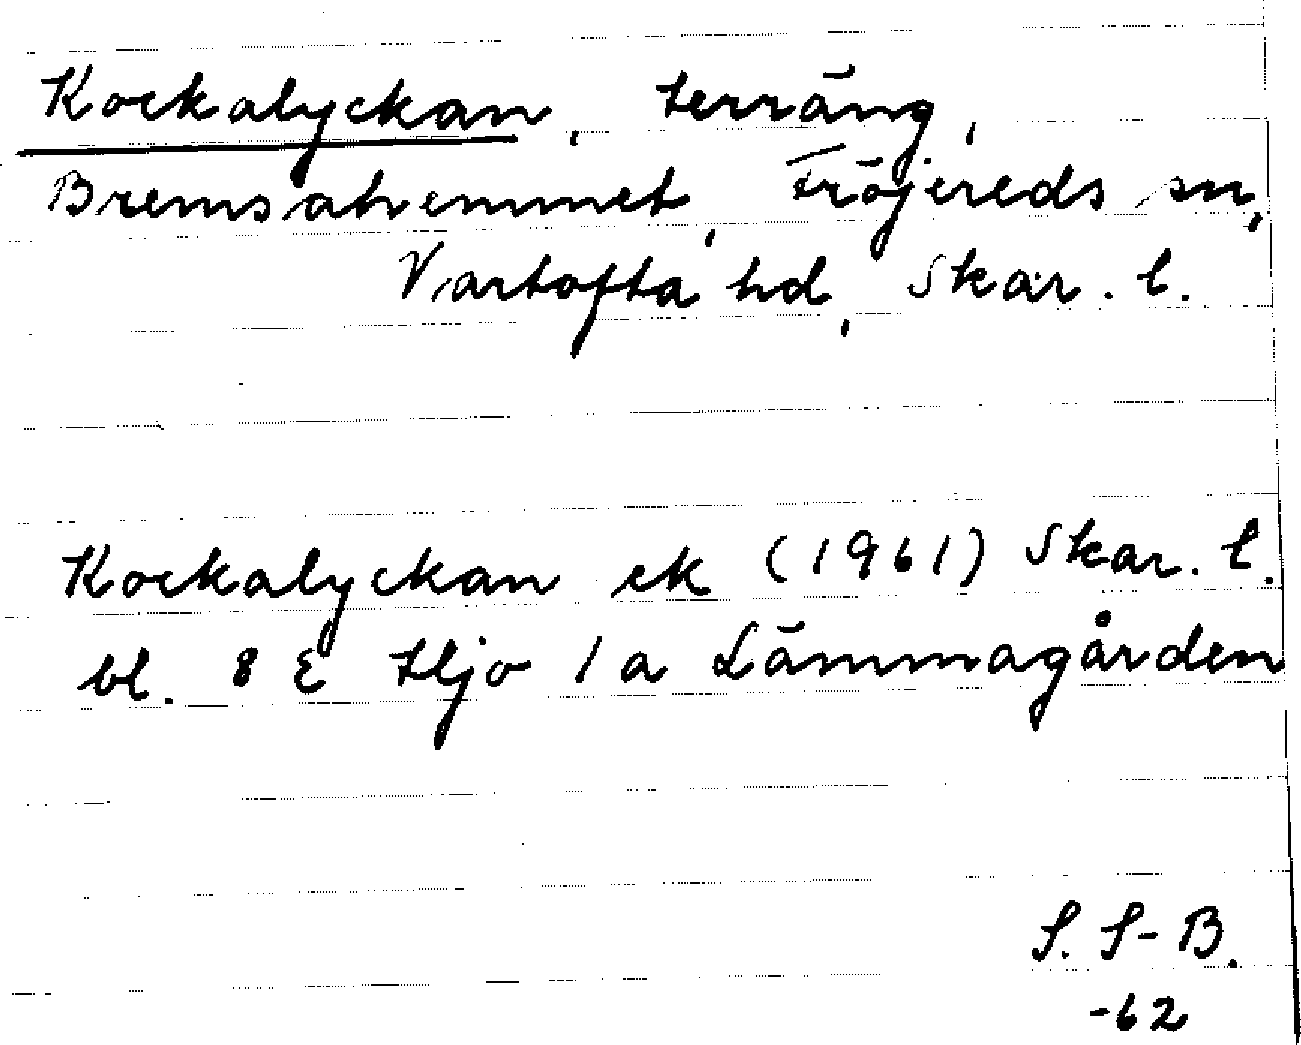 Kockalyckan, terräng,
Bremsahemmet, Fröjereds sn,
Vartofta hd, Skar. l.
Kockalyckan ek (1961) Skar. l.
bl. 8 E Hjo 1 a Lämmagården
S. S-B.
-62